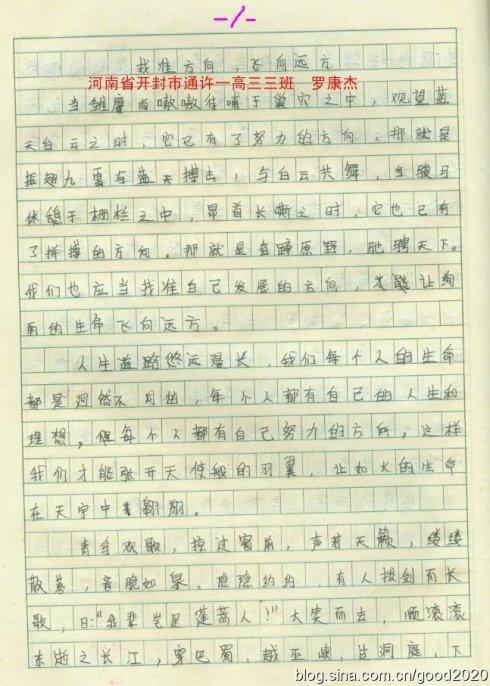 -1-
找准方向，飞向远方
河南省开封市通许一高三三班　罗康杰
当雏鹰尚嗷嗷待哺于巢穴之中，观望蓝
天白云之时，它已有了努力的方向，那就是
振翅九霄与蓝天搏击，与白云共舞，当骏马
休憩于栅栏之中，昂首长嘶之时，它也已有
了拼搏的方向，那就是奋蹄原野，驰骋天下。
我们也应当找准自己发展的方向，才能让绚
丽的生命飞向远方。
人生道路悠远漫长，我们每个人的生命
都是迥然不同的，每个人都有自己的人生和
理想，但每个人都有自己努力的方向，这样
我们才能张开天使般的羽翼，让如火的生命
在天宇中翱翔。
青鸟欢歌，掠过窗前，声若天籁，缕缕
散落，音脆如泉。隐隐约约，有人拔剑而长
歌，曰："我辈岂是蓬蒿人！"大笑而去，顺滚滚
东逝之长江，穿巴蜀，越巫峡，出洞庭，下
blog.sina.com.cn/good2020